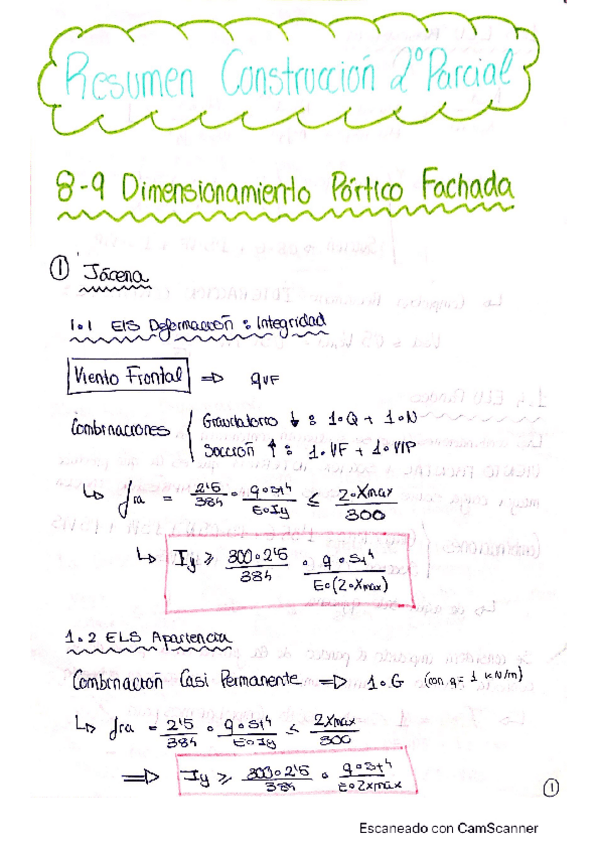 Resumen Construcción 2º Parcial
8-9 Dimensionamiento Pórtico Fachada
① Jácena
1.1 ElS Deformación : Integridad
Viento Frontal => qVF
Combinaciones { Gravitatorio ↓ : 1·Q + 1·N
Succión ↑ : 1·VF + 1·VIP
↳ fra = 2'5/384 · q·St⁴/E·Iy ≤ 2·Xmax/300
↳ Iy ≥ 300·2'5/384 · q·St⁴/E·(2·Xmax)
1.2 ELS Apariencia
Combinación Casi Permanente => 1·G (con g= 1 kN/m)
↳ fra = 2'5/384 · q·St⁴/E·Iy ≤ 2Xmax/300
=> Iy ≥ 300·2'5/384 · q·St⁴/E·2Xmax
①
Escaneado con CamScanner